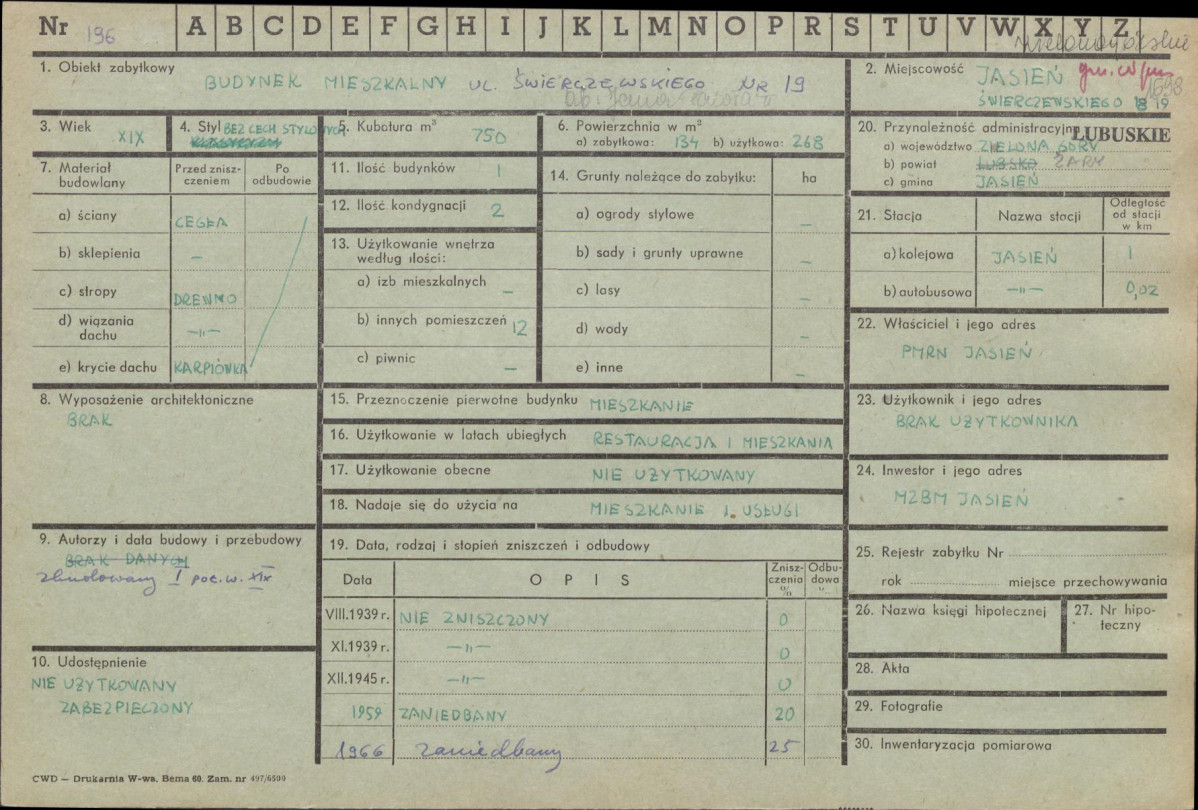 Nr 196 A B C D E F G H I J K L M N O P R S T U V W X Y Z
1. Obiekt zabytkowy BUDYNEK MIESZKALNY UL. ŚWIERCZEWSKIEGO NR 19
2. Miejscowość JASIEŃ
ŚWIERCZEWSKIEGO 19
3. Wiek XIX
4. Styl BEZ CECH STYLOWYCH
5. Kubatura m³ 750
6. Powierzchnia w m²
a) zabytkowa: 134 b) użytkowa: 268
20. Przynależność administracyjna LUBUSKIE
a) województwo ZIELONA GÓRA
b) powiat LUBSKO ŻARY
c) gmina JASIEŃ
7. Materiał budowlany
Przed zniszczeniem
Po odbudowie
a) ściany CEGŁA
b) sklepienia –
c) stropy DREWNO
d) wiązania dachu –"–
e) krycie dachu KARPIÓWKA
11. Ilość budynków 1
12. Ilość kondygnacji 2
13. Użytkowanie wnętrza według ilości:
a) izb mieszkalnych –
b) innych pomieszczeń 12
c) piwnic –
14. Grunty należące do zabytku: ha
a) ogrody stylowe –
b) sady i grunty uprawne –
c) lasy –
d) wody –
e) inne –
21. Stacja Nazwa stacji Odległość od stacji w km
a) kolejowa JASIEŃ 1
b) autobusowa –"– 0,02
22. Właściciel i jego adres
PMRN JASIEŃ
8. Wyposażenie architektoniczne
BRAK
15. Przeznoczenie pierwotne budynku MIESZKANIE
16. Użytkowanie w latach ubiegłych RESTAURACJA I MIESZKANIA
17. Użytkowanie obecne NIE UŻYTKOWANY
18. Nadaje się do użycia na MIESZKANIE I USŁUGI
23. Użytkownik i jego adres
BRAK UŻYTKOWNIKA
24. Inwestor i jego adres
MZBM JASIEŃ
9. Autorzy i data budowy i przebudowy
BRAK DANYCH
zbudowany I poł. w. XIX
19. Data, rodzaj i stopień zniszczeń i odbudowy
Data OPIS Zniszczenia % Odbudowa %
VIII.1939 r. NIE ZNISZCZONY 0
XI.1939 r. –"– 0
XII.1945 r. –"– 0
1959 ZANIEDBANY 20
1966 zaniedbany 25
25. Rejestr zabytku Nr
rok miejsce przechowywania
26. Nazwa księgi hipotecznej
27. Nr hipoteczny
28. Akta
29. Fotografie
30. Inwentaryzacja pomiarowa
10. Udostępnienie
NIE UŻYTKOWANY
ZABEZPIECZONY
CWD – Drukarnia W-wa, Bema 60. Zam. nr 497/6500